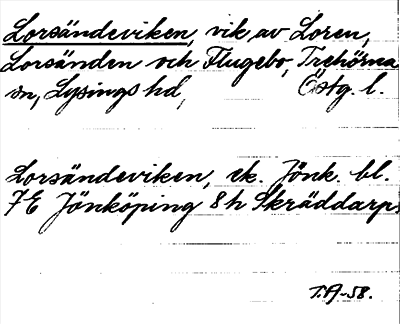 Lorsändeviken, vik, av Loren,
Lorsänden och Flugebo, Trehörna
sn, Lysings hd, Östg. l.
Lorsändeviken, ek. Jönk. bl.
7E Jönköping 8h Skräddarp.
T.A-58.